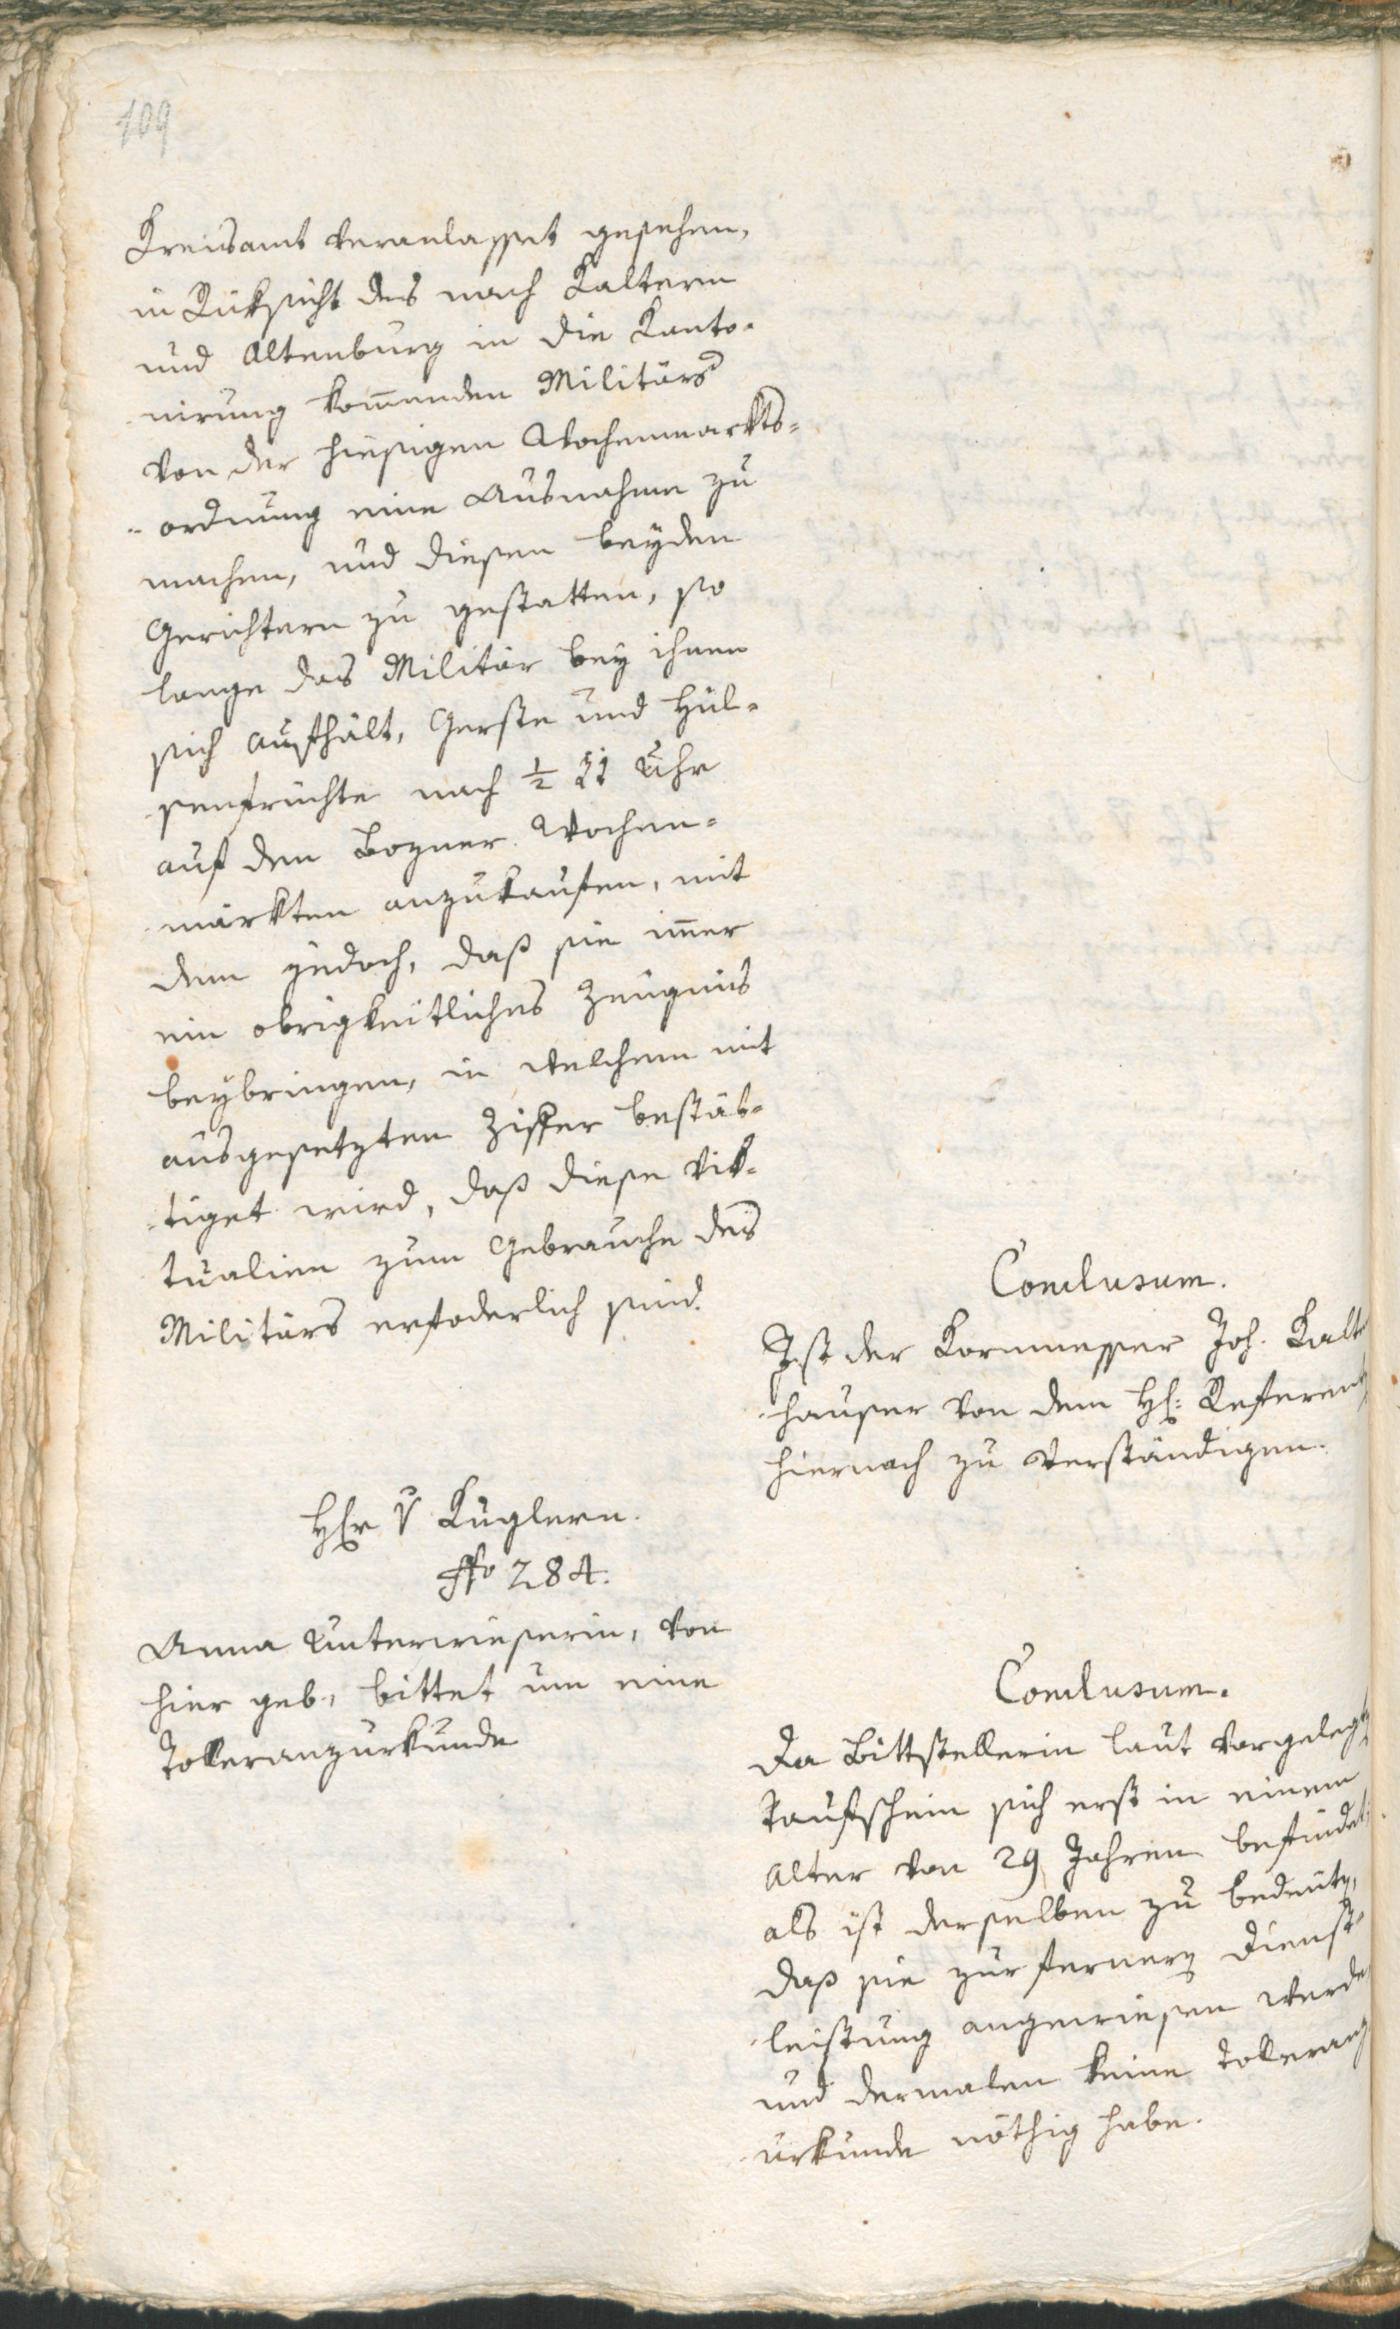 109
Kreisamt veranlasset gesehen,
in Rüksicht des nach Kaltern
und Altenburg in die Kanto-
nirung kom̅enden Militärs
von der hiesigen Wochenmarkts-
-ordnung eine Ausnahme zu
machen, und diesen beyden
Gerichtern zu gestatten, so
lange das Militär bey ihnen
sich aufhält, Gerste und Hül-
senfrüchte nach ½ 11 Uhr
auf den Bozner Wochen-
märkten anzukaufen, mit
dem jedoch, daß sie im̅er
ein obrigkeitliches Zeugnis
beybringen, in welchem mit
ausgesetzten Ziffer bestät-
tiget wird, daß diese Vik-
tualien zum Gebrauche des
Militärs erfoderlich sind.
Conclusum.
Ist der Kornmesser Joh. Kalt
hauser von dem H: Referent
hiernach zu verständigen.
Hr v Kuglern.
No 284.
Anna Unterwieserin, von
hier geb, bittet um eine
Tolleranzurkunde
Conclusum.
Da Bittstellerin laut vorgelegt
Taufschein sich erst in einem
Alter von 29 Jahren befindet
als ist derselben zu bedeuten,
daß sie zur fernern Dienst-
leistung angewiesen werde
und dermalen keine Tolleranz
urkunde nöthig habe.